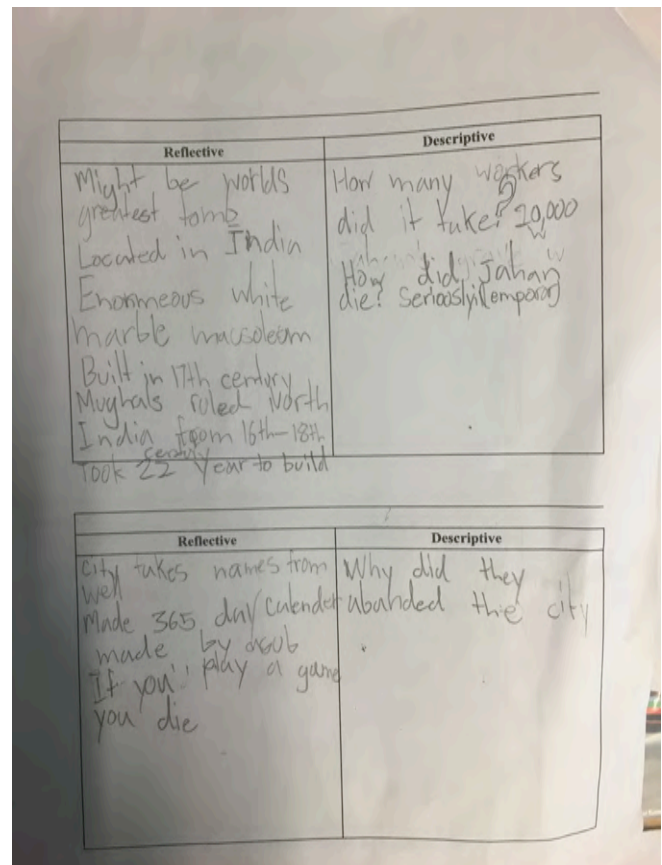 Reflective
Descriptive
Might be worlds
greatest tomb
Located in India
Enormeous white
marble macsoleom
Built in 17th century
Mughals roled North
India from 16th-18th
century
Took 22 year to build
How many workers
did it take? 20,000
How did Jahan
die? Seriosly ill emporor
Reflective
Descriptive
City takes names from
well
Made 365 day calender
made by
If you play a game
you die
Why did they
abanded the city